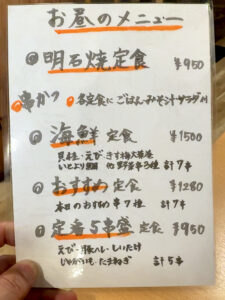 お昼のメニュー
明石焼定食 ¥950
串かつ 各定食に ごはん・みそ汁・サラダ付
海鮮 定食 ¥1500
貝柱・えび きす梅大葉巻
いとより鯛 他 野菜串3種 計7本
おすすめ 定食 ¥1280
本日のおすすめ 串7種 計7本
定番5串盛 定食 ¥950
えび・豚ヘレ・しいたけ
じゃがいも たまねぎ 計5本